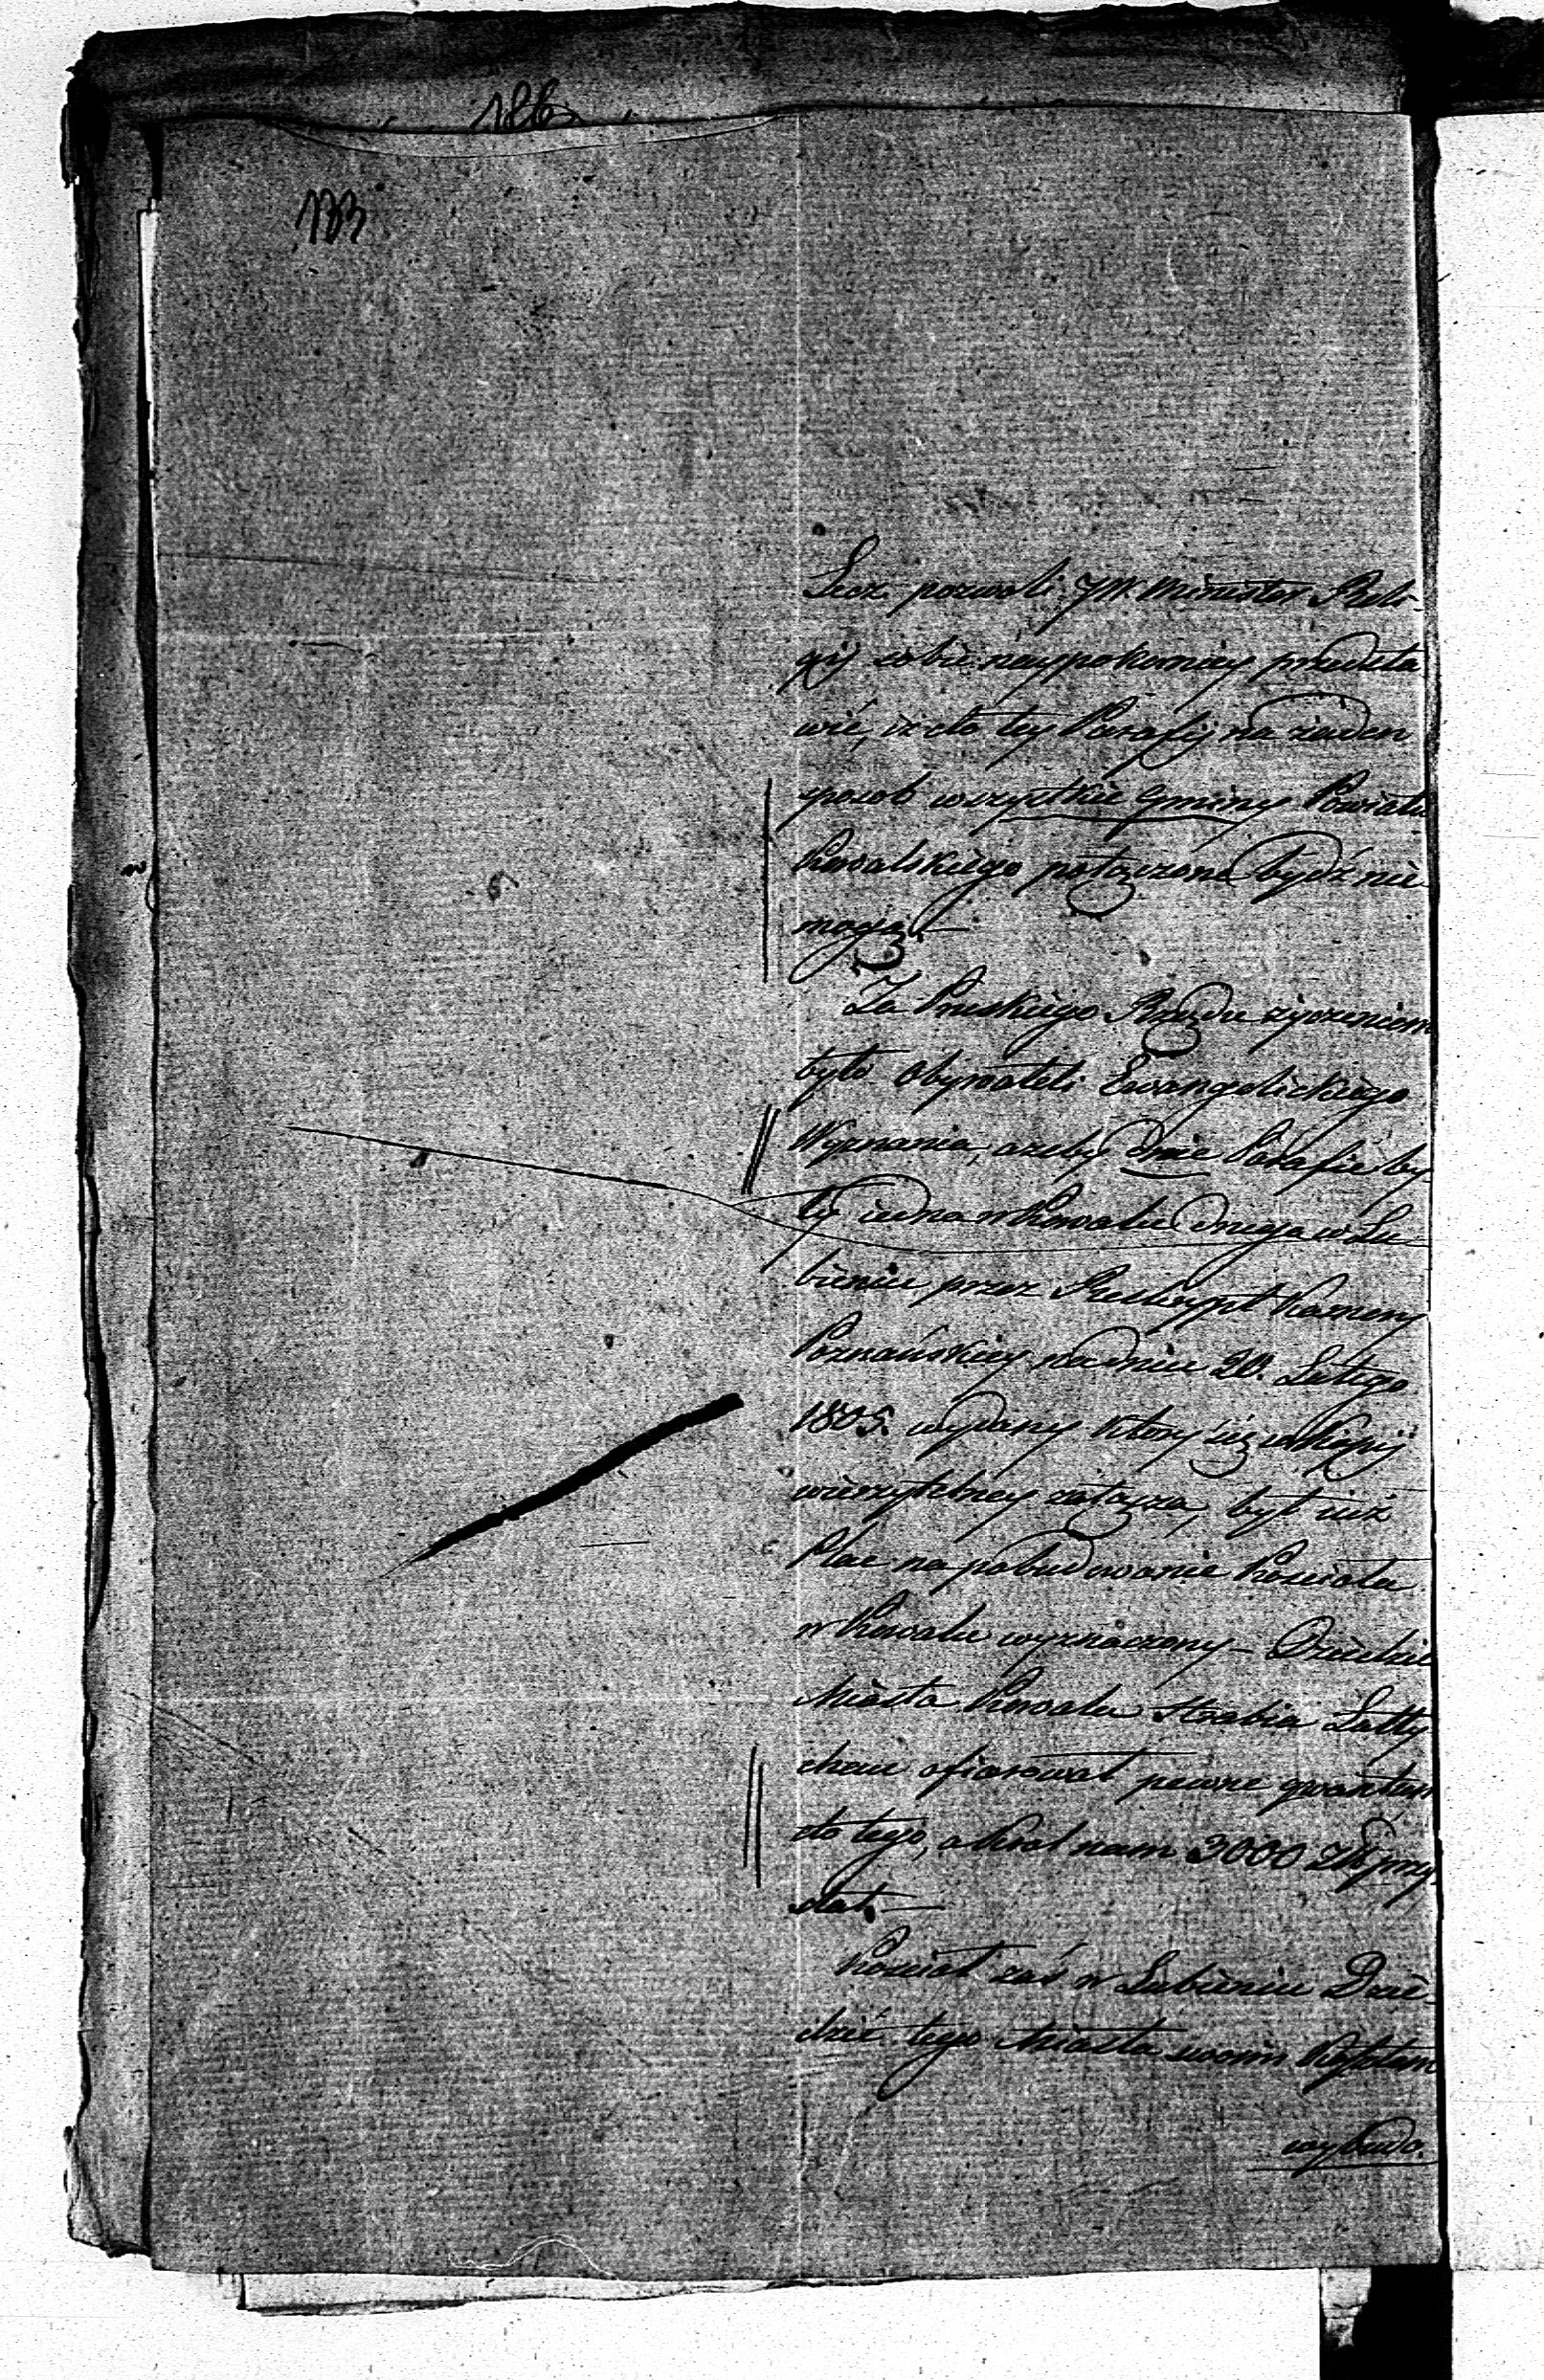 186
133
Lecz pozwoli JW. Minister Reli-
gij sobie naypokorniey przedsta
wić, iż do tey Parafij na żaden
sposob wszystkie Gminy Powiatu
Kowalskiego połączone bydź nie
mogą.—
Za Pruskiego Rządu życzeniem
było Obywateli Ewangelickiego
Wyznania, ażeby dwie Parafie by
ły iedna w Kowalu druga w Lu-
bieniu, przez Reskrypt Kamery
Poznańskiey na dniu 20. Lutego
1805. wydany który się w Kopij
wierzytelney załącza, był iuż
Plac na pobudowanie Kościoła
w Kowalu wyznaczony – Dziedzic
Miasta Kowala Hrabia Lütty
chau ofiarował pewne quantum
do tego, a Król nam 3000 przy
słał.—
Kościoł zaś w Lubieniu Dzie-
dzic tego Miasta swoim Kosztem
wybudo.